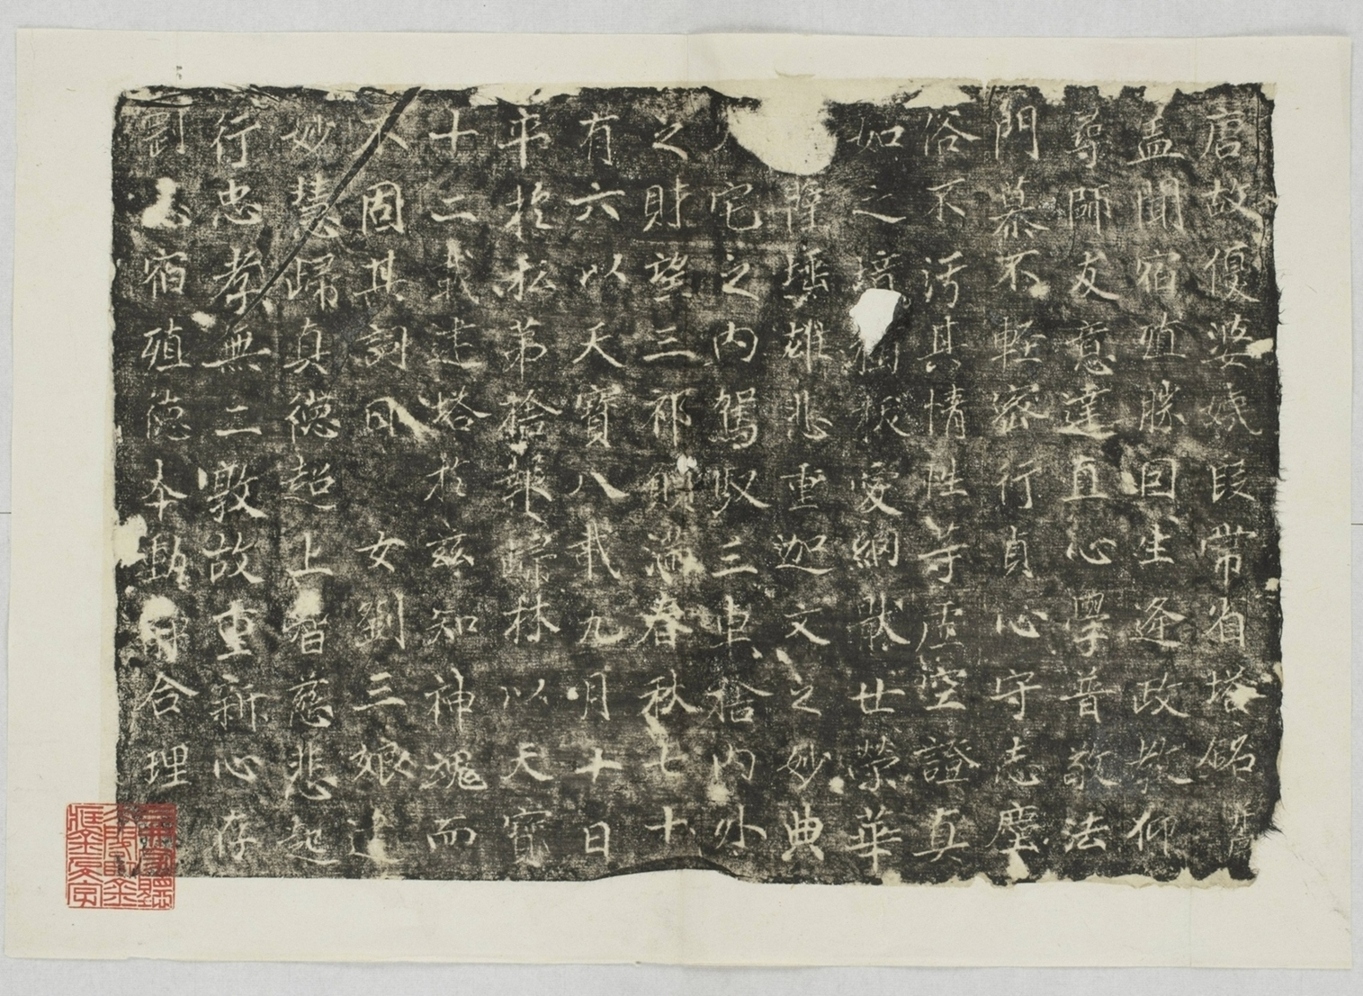 唐故優婆姨段常省塔銘
蓋聞宿殖勝因生逢政教仰
尋師友意達直心學普敬法
門慕不輕密行貞心守志塵
俗不污其情性等虛空證真
如之境 狀受網厭世榮華
雄悲重迦文之妙典
宅之內駕馭三車捨內外
之財望三祁 滿春秋七十
有六以天寶八載九月十日
卒於私第捨華 林以天寶
十二載建塔於茲知神魂而
不固其詞曰 女劉三娘建
妙慧歸真德超上智慈悲起
行忠孝無二敦故重新心存
剖 宿殖德本助 合理